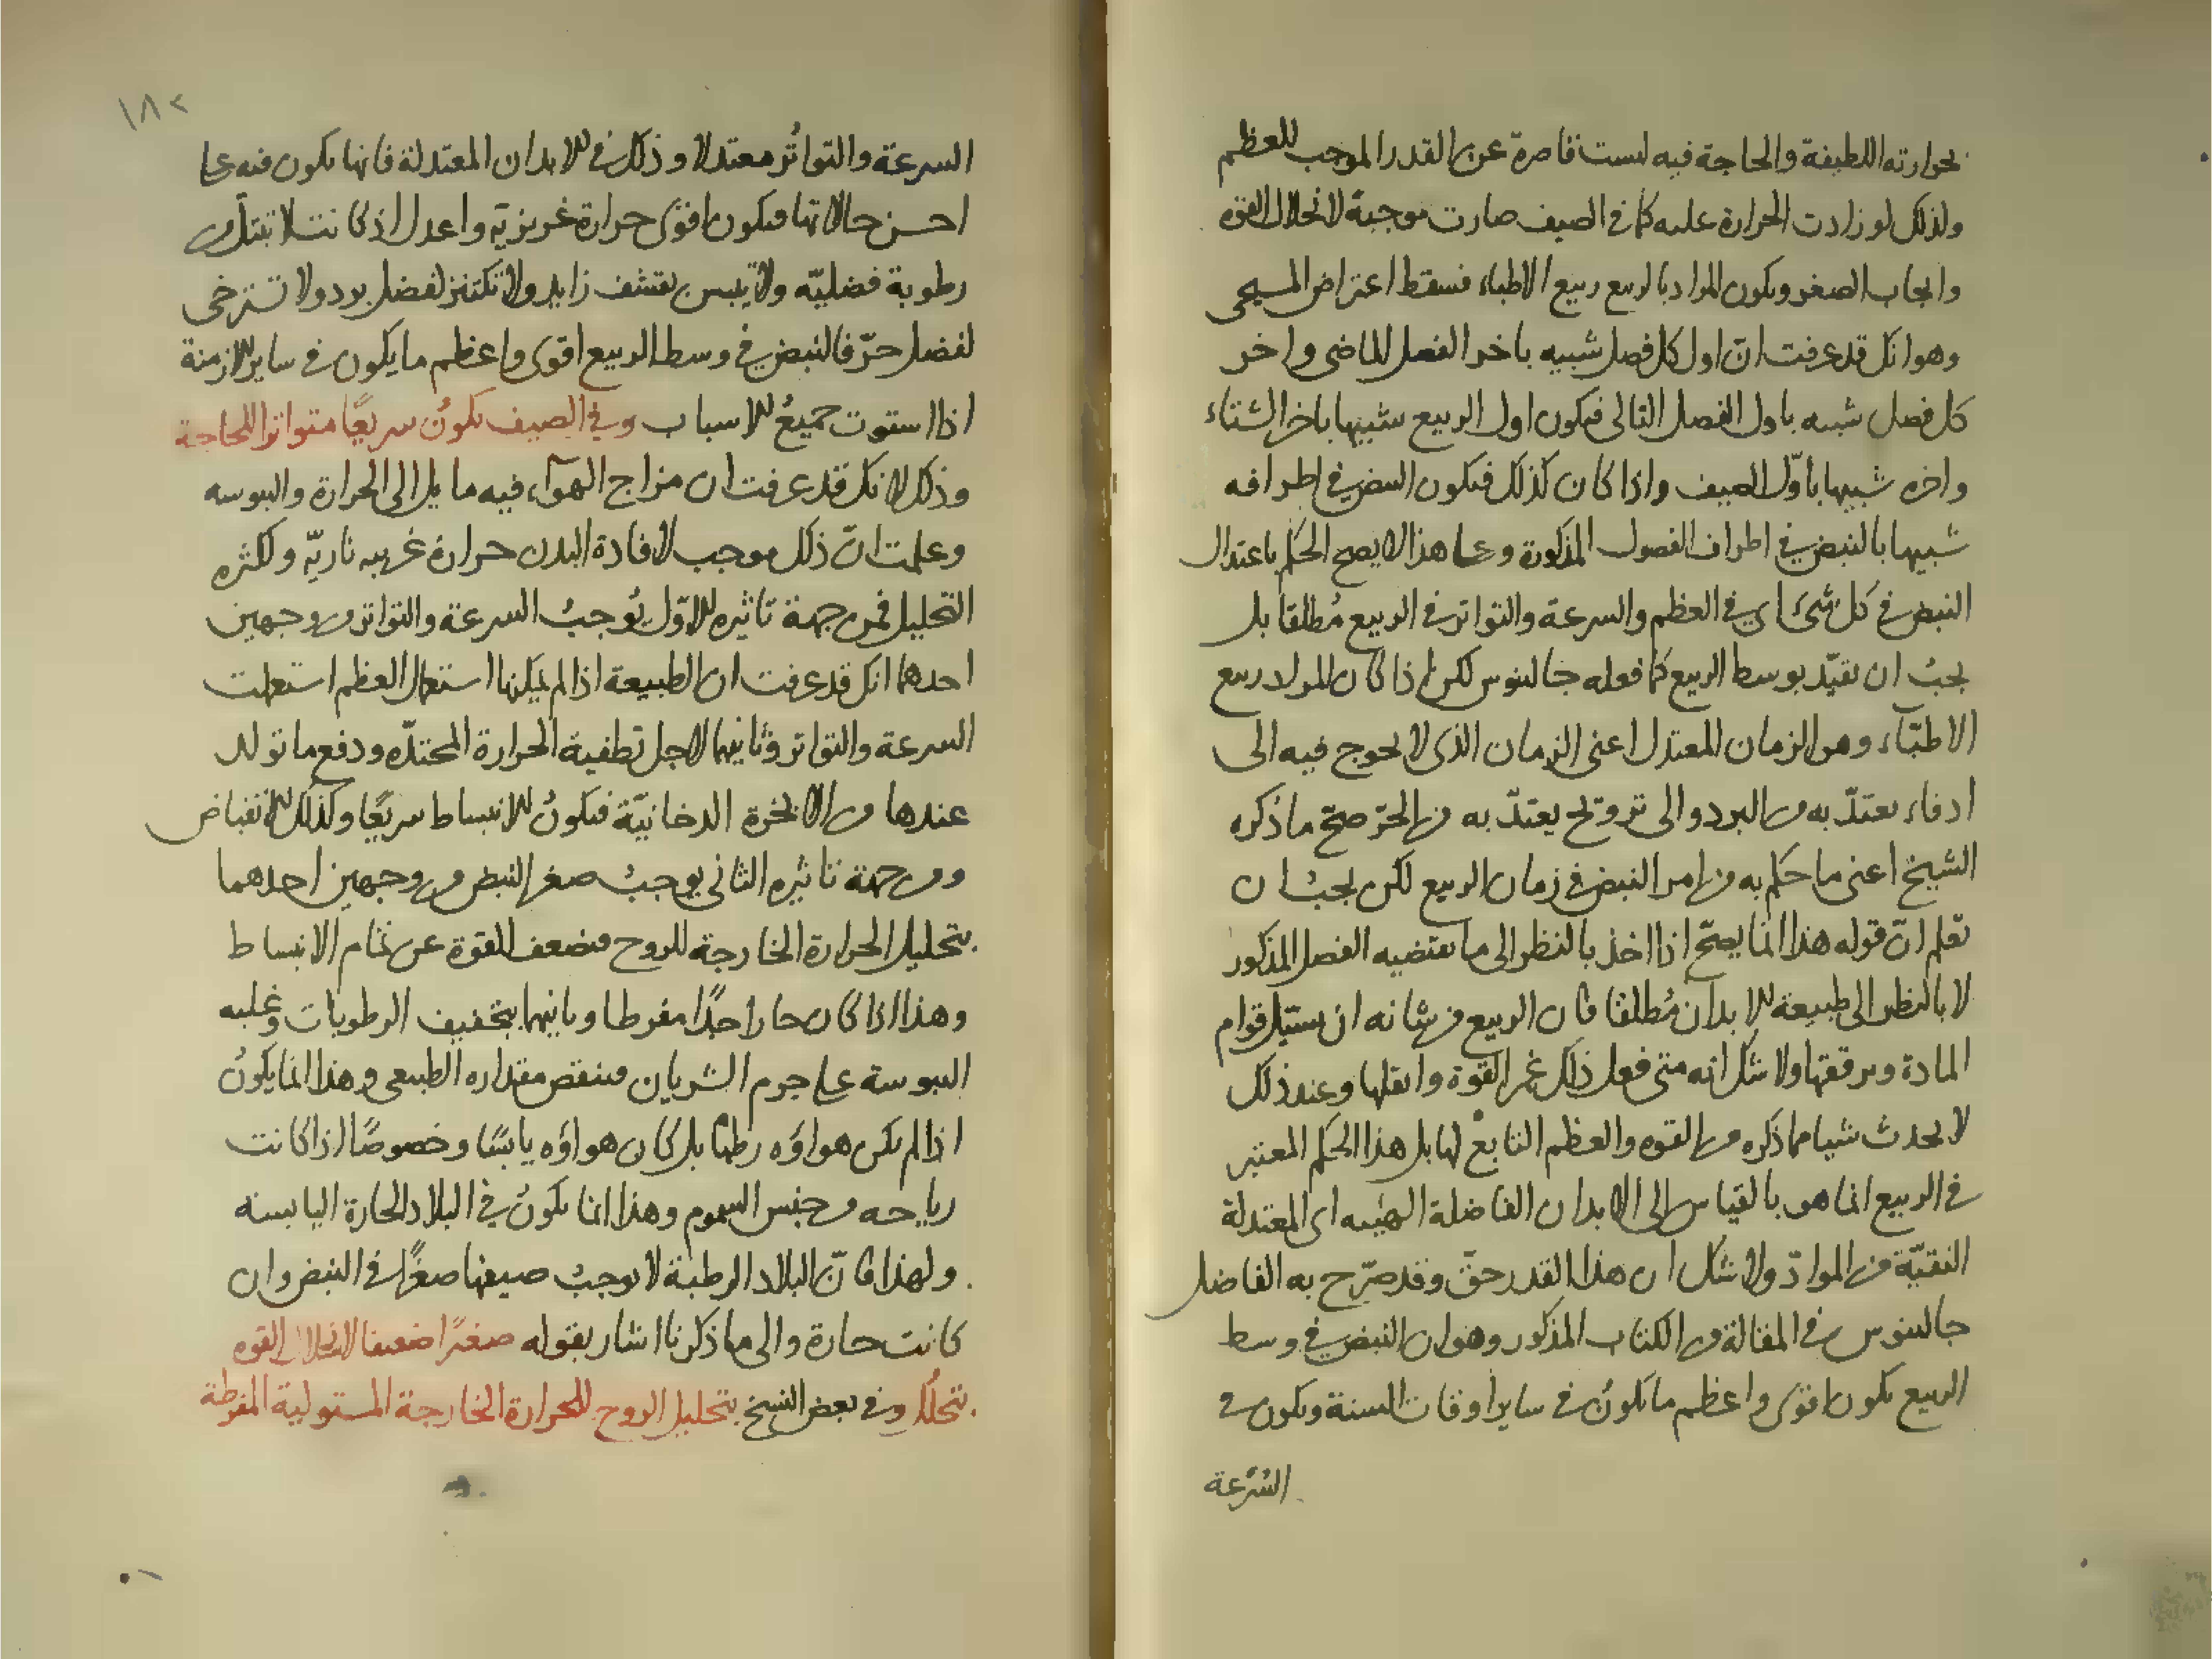 بحرارته اللطيفة والحاجة فيه ليست قاصرة عن القدر الموجب للعظم
ولذلك لو زادت الحرارة عليه كما في الصيف صارت موجبة لانحلال القوه
وايجاب الصغر ويكون المراد بالربيع ربيع الاطباء فسقط اعتراض المسيحى
وهو انك قد عرفت انّ اول كل فصل شبيه باخر الفصل الماضى واخر
كل فصل شبيه باول الفصل التالى فيكون اول الربيع شبيها باخر الشتاء
واخره شبيها بأوّل الصيف واذا كان كذلك فيكون النبض في اطرافه
شبيها بالنبض في اطراف الفصول المذكورة وعلى هذا لا يصح الحكم باعتدال
النبض في كل شئ اى في العظم والسرعة والتواتر في الربيع مُطلقا بل
يجبُ ان يقيّد بوسط الربيع كما فعله جالينوس لكن اذا كان المراد ربيع
الاطبّاء وهو الزمان المعتدل اعنى الزمان الذى لا يحوج فيه الى
ادفاء يعتدّ به من البرد والى ترويح يعتدّ به من الحرّ صحّ ما ذكره
الشيخ اعنى ما حكم به من امر النبض في زمان الربيع لكن يجبُ ان
تعلم انّ قوله هذا انما يصحّ اذا اخذ بالنظر الى ما يقتضيه الفصل المذكور
لا بالنظر الى طبيعة الابدان مُطلقا فان الربيع من شانه ان يسيّل قوام
المادة ويرققها ولا شك انه متى فعل ذلك غمر القوة واثقلها وعند ذلك
لا يحدث شيا مما ذكره من القوه والعظم التابعُ لها بل هذا الحكم المعتبر
في الربيع انما هو بالقياس الى الابدان الفاضلة الهيئه اى المعتدلة
النقيّة من الموادّ ولا شك ان هذا القدر حقّ وقد صرّح به الفاضل
جالينوس في المقالة من الكتاب المذكور وهو ان النبض في وسط
الربيع يكون اقوى واعظم ما يكونُ في ساير اوقات السنة ويكون في
السُّرعة
١٨٢
السرعة والتواتُر معتدلا وذلك في الابدان المعتدلة فانها يكون فيه على
احسن حالاتها فيكون اقوى حرارة غريزيّة واعدل اذ كانت لا تبتلّ من
رطوبة فضليّه ولا تيبس بقشف زايد ولا تكتنز لفضل برد ولا تسترخى
لفضل حرّ فالنبض في وسط الربيع اقوى واعظم ما يكون في ساير الازمنة
اذا استوت جميعُ الاسباب وفي الصيف يكونُ سريعًا متواترا للحاجة
وذلك لانك قد عرفت ان مزاج الهوآء فيه مايل الى الحرارة واليبوسه
وعلمت انّ ذلك موجب لافادة البدن حرارة غريبه ناريّه ولكثره
التحليل فمن جهة تاثيره الاوّل يُوجبُ السرعة والتواتر من وجهين
احدهما انك قد عرفت ان الطبيعة اذا لم يمكنها استعمال العظم استعملت
السرعة والتواتر وثانيهما لاجل تطفية الحرارة المحتدّه ودفع ما تولد
عندها من الابخرة الدخانيّة فيكونُ الانبساط سريعًا وكذلك الانقباض
ومن جهة تاثيره الثانى يوجبُ صغر النبض من وجهين احدهما
بتحليل الحرارة الخارجة للروح فيضعف القوة عن تمام الانبساط
وهذا اذا كان حارا جدًّا مفرطا وثانيهما بتجفيف الرطوبات وغلبه
اليبوسة على جرم الشريان فينقص مقداره الطبيعى وهذا انما يكونُ
اذا لم يكن هواوَه رطبًا بل كان هواؤه يابسًا وخصوصًا اذا كانت
رياحه من جنس السموم وهذا انما يكونُ في البلاد الحارة اليابسه
ولهذا فانّ البلاد الرطبة لا يوجبُ صيفها صغرًا في النبض وان
كانت حارة والى ما ذكرنا اشار بقوله صغيرًا ضعيفا لانحلال القوه
بتحلّل وفي بعض النسخ بتحليل الروح للحرارة الخارجة المستولية المفرطة